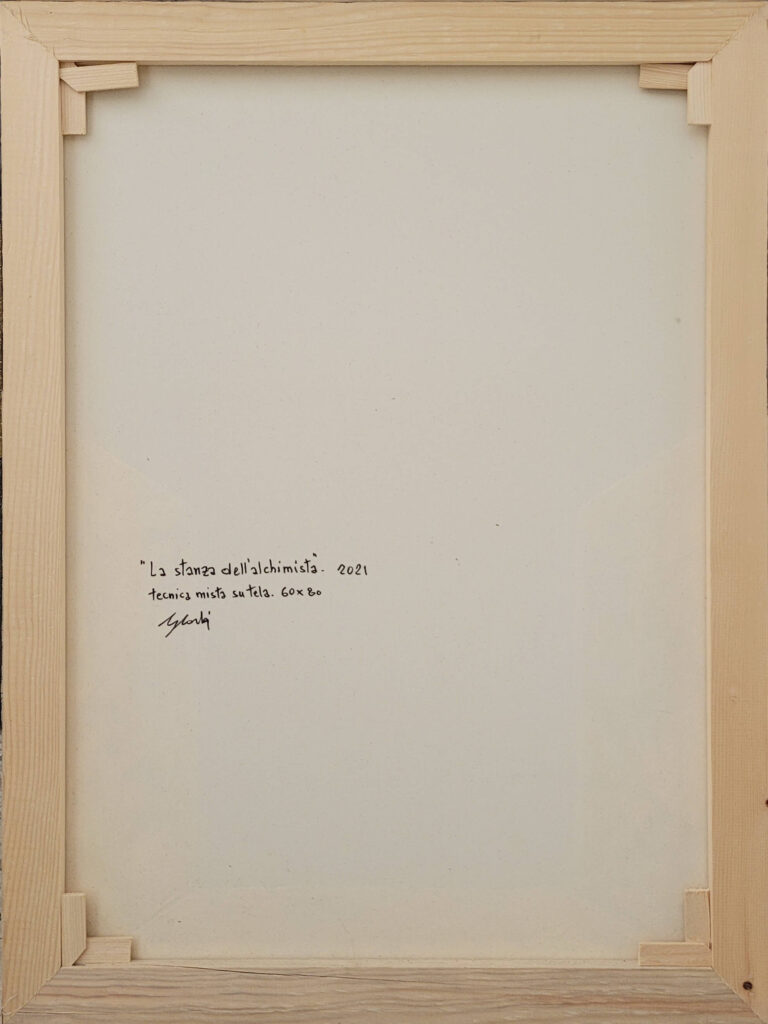 "La stanza dell'alchimista". 2021
tecnica mista su tela. 60x80